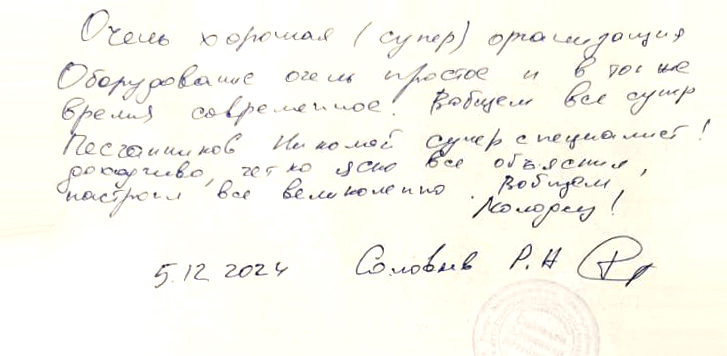 Очень хорошая (супер) организация
Оборудование очень простое и в тоже
время современное. Вобщем все супер
Песчанников Николай супер специалист!
доходчиво, четко ясно все объяснил,
настроил все великолепно. Вобщем
Молодец!
5.12 2024 Соловьев Р.Н